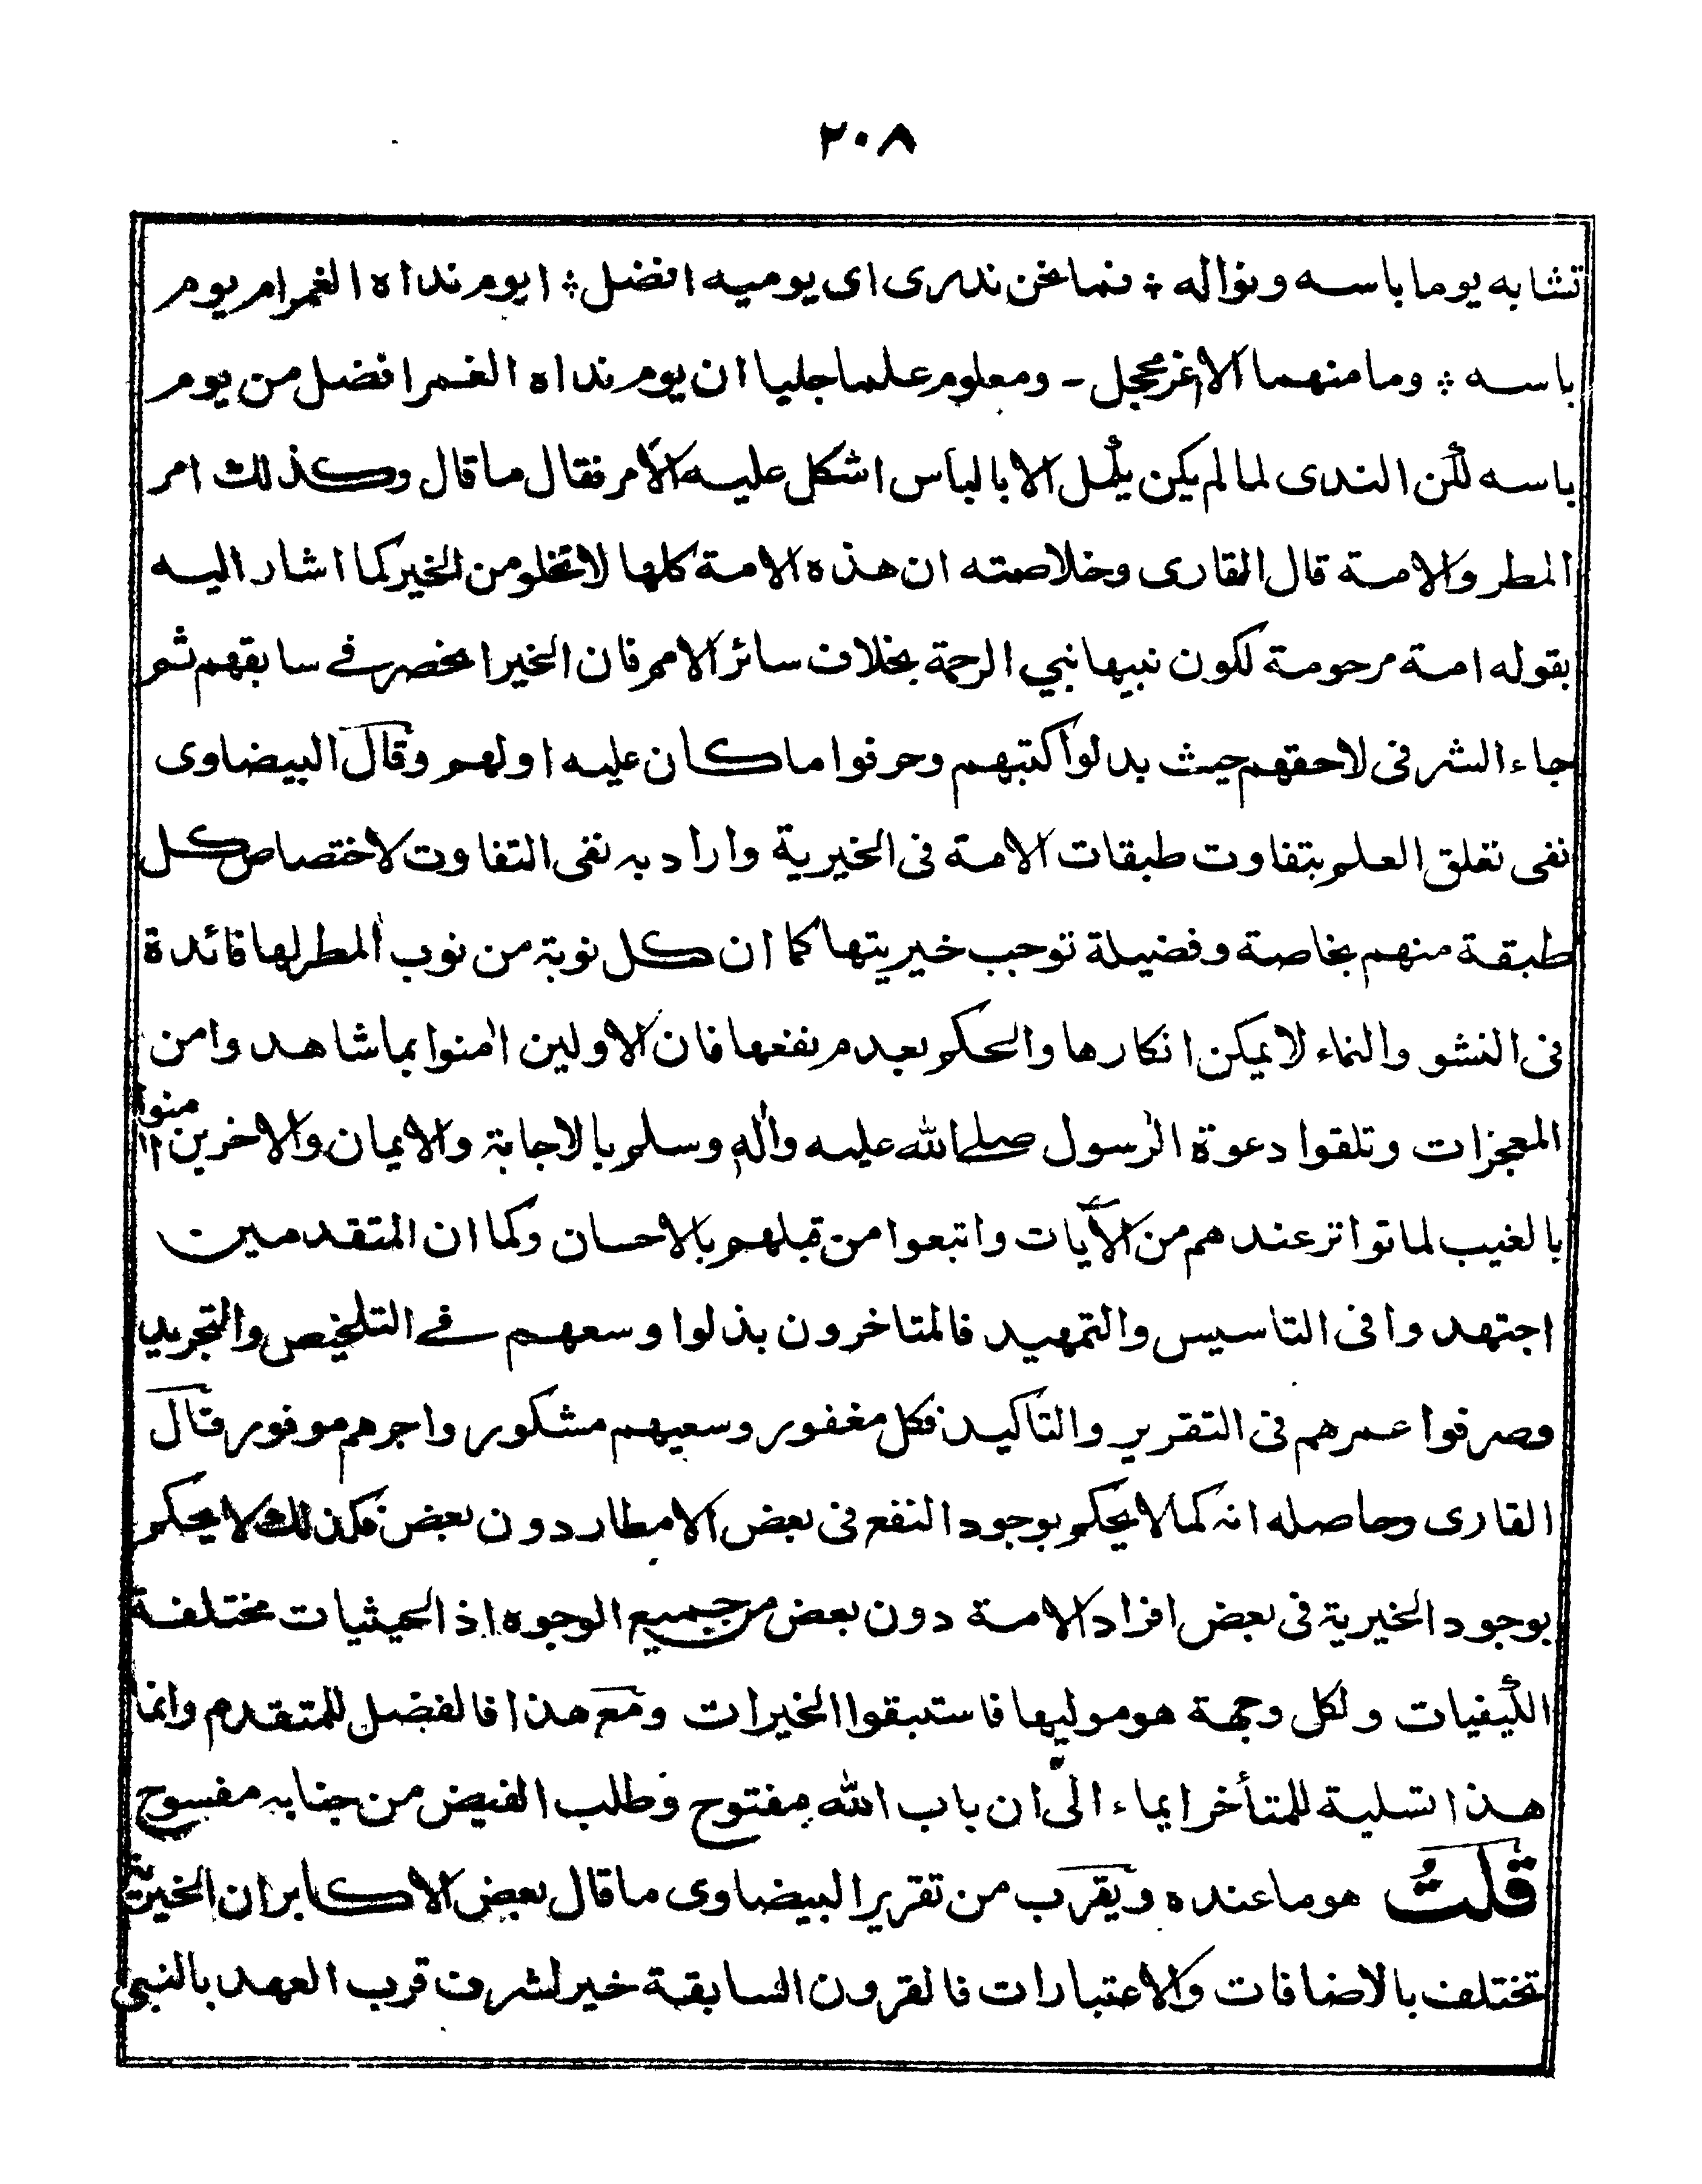 ٢٠٨
تشابه يوما باسه ونواله ؞ فما نحن ندرى اى يوميه افضل ؞ ايوم نداه الغمر ام يوم
باسه ؞ وما منهما الا اغر محجل - ومعلوم علما جليا ان يوم نداه الغمر افضل من يوم
باسه لكن الندى لما لم يكن يكمل الا بالباس اشكل عليه الأمر فقال ما قال وكذلك امر
المطر والامة قال القارى وخلاصته ان هذه الامة كلها لا تخلو من الخير كما اشار اليه
بقوله امة مرحومة لكون نبيها نبي الرحمة بخلاف سائر الامم فان الخير انحصر في سابقهم ثم
جاء الشر فى لاحقهم حيث بدلوا كتبهم وحرفوا ما كان عليه اولهم وقال البيضاوى
نفى تعلق العلم بتفاوت طبقات الامة فى الخيرية واراد به نفى التفاوت لاختصاص كل
طبقة منهم بخاصة وفضيلة توجب خيريتها كما ان كل نوبة من نوب المطر لها فائدة
فى النشو والنماء لا يمكن انكارها والحكم بعدم نفعها فان الاولين اٰمنوا بما شاهدوا من
المعجزات وتلقوا دعوة الرسول صلى الله عليه واٰله وسلم بالاجابة والايمان والاخرين اٰمنوا
بالغيب لما تواتر عندهم من الاٰيات واتبعوا من قبلهم بالاحسان وكما ان المتقدمين
اجتهدوا فى التاسيس والتمهيد فالمتاخرون بذلوا وسعهم في التلخيص والتجريد
وصرفوا عمرهم فى التقرير والتاكيد فكل مغفور وسعيهم مشكور واجرهم موفور قال
القارى وحاصله انه كما لا يحكم بوجود النفع فى بعض الامطار دون بعض فكذلك لا يحكم
بوجود الخيرية فى بعض افراد الامة دون بعض من جميع الوجوه اذ الحيثيات مختلفة
الكيفيات ولكل وجهة هو موليها فاستبقوا الخيرات ومع هذا فالفضل للمتقدم وانما
هذا تسلية للمتأخر ايماء الى ان باب الله مفتوح وطلب الفيض من جنابه مفسوح
قلتُ هو ما عنده ويقرب من تقرير البيضاوى ما قال بعض الاكابر ان الخيرية
تختلف بالاضافات والاعتبارات فالقرون السابقة خير لشرف قرب العهد بالنبى